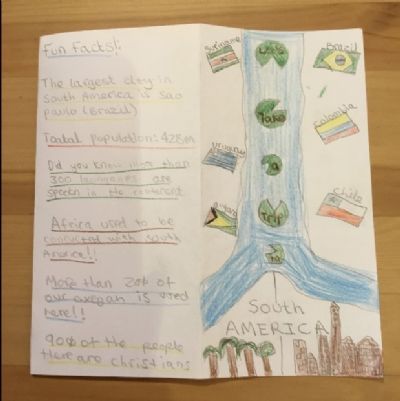 Fun Facts!
The largest city in
South America is sao
paulo (Brazil)
Toatal population: 428m
Did you know more than
300 launguages are
speech in the contenent
Africa used to be
connected with south
America!!
More than 20% of
our oxegan is used
here!!
90% of the people
there are christians
Suriname
Uruguay
Guyana
Lets
Take
a
Trip
To
Brazil
Colombia
Chile
South
AMERICA